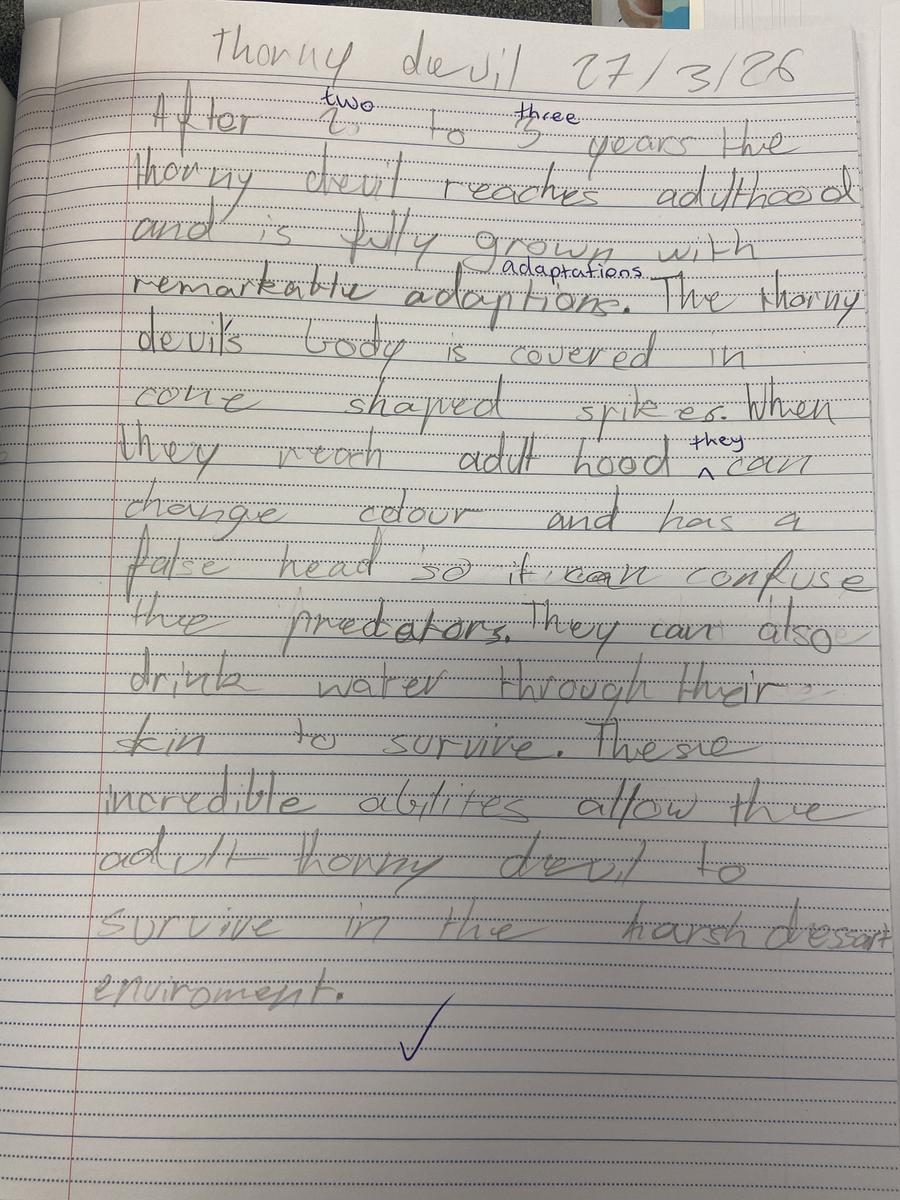 thorny devil 27/3/26
two three
After 2 to 3 years the
thorny devil reaches adulthood
and is fully grown with
adaptations
remarkable adaptions. The thorny
devil's body is covered in
cone shaped spikes. When
they
they reach adult hood ^ can
change colour and has a
false head so it can confuse
the predators. They can also
drink water through their
skin to survive. These
incredible abilites allow the
adult thorny devil to
survive in the harsh dessart
enviroment.